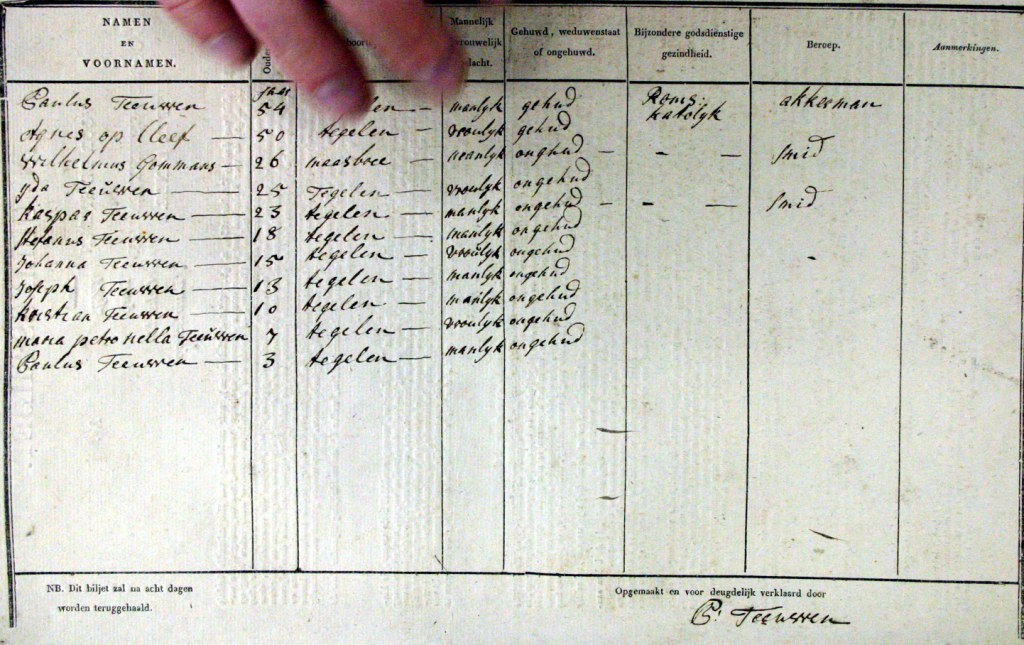 NAMEN EN VOORNAMEN. Mannelijk Gehuwd, weduwenstaat of ongehuwd. Bijzondere godsdienstige gezindheid. Beroep. Aanmerkingen.
Paulus Teeuwen 54 manlyk gehud Roms: katolyk akkerman
Agnes op Cleef 50 tegelen vroulyk gehud
Wilhelmus Gommans 26 maasbree manlyk onghud smid
yda Teeuwen 25 Tegelen vroulyk ongehud
kaspar Teeuwen 23 tegelen manlyk ongehud smid
stefanus Teeuwen 18 tegelen manlyk ongehud
Johanna Teeuwen 15 tegelen vroulyk ongehud
Joseph Teeuwen 13 tegelen manlyk ongehud
kristian Teeuwen 10 tegelen manlyk ongehud
maria petronella Teeuwen 7 tegelen vroulyk ongehud
Paulus Teeuwen 3 tegelen manlyk ongehud
NB. Dit biljet zal na acht dagen
worden teruggehaald.
Opgemaakt en voor deugdelijk verklaard door
P: Teeuwen